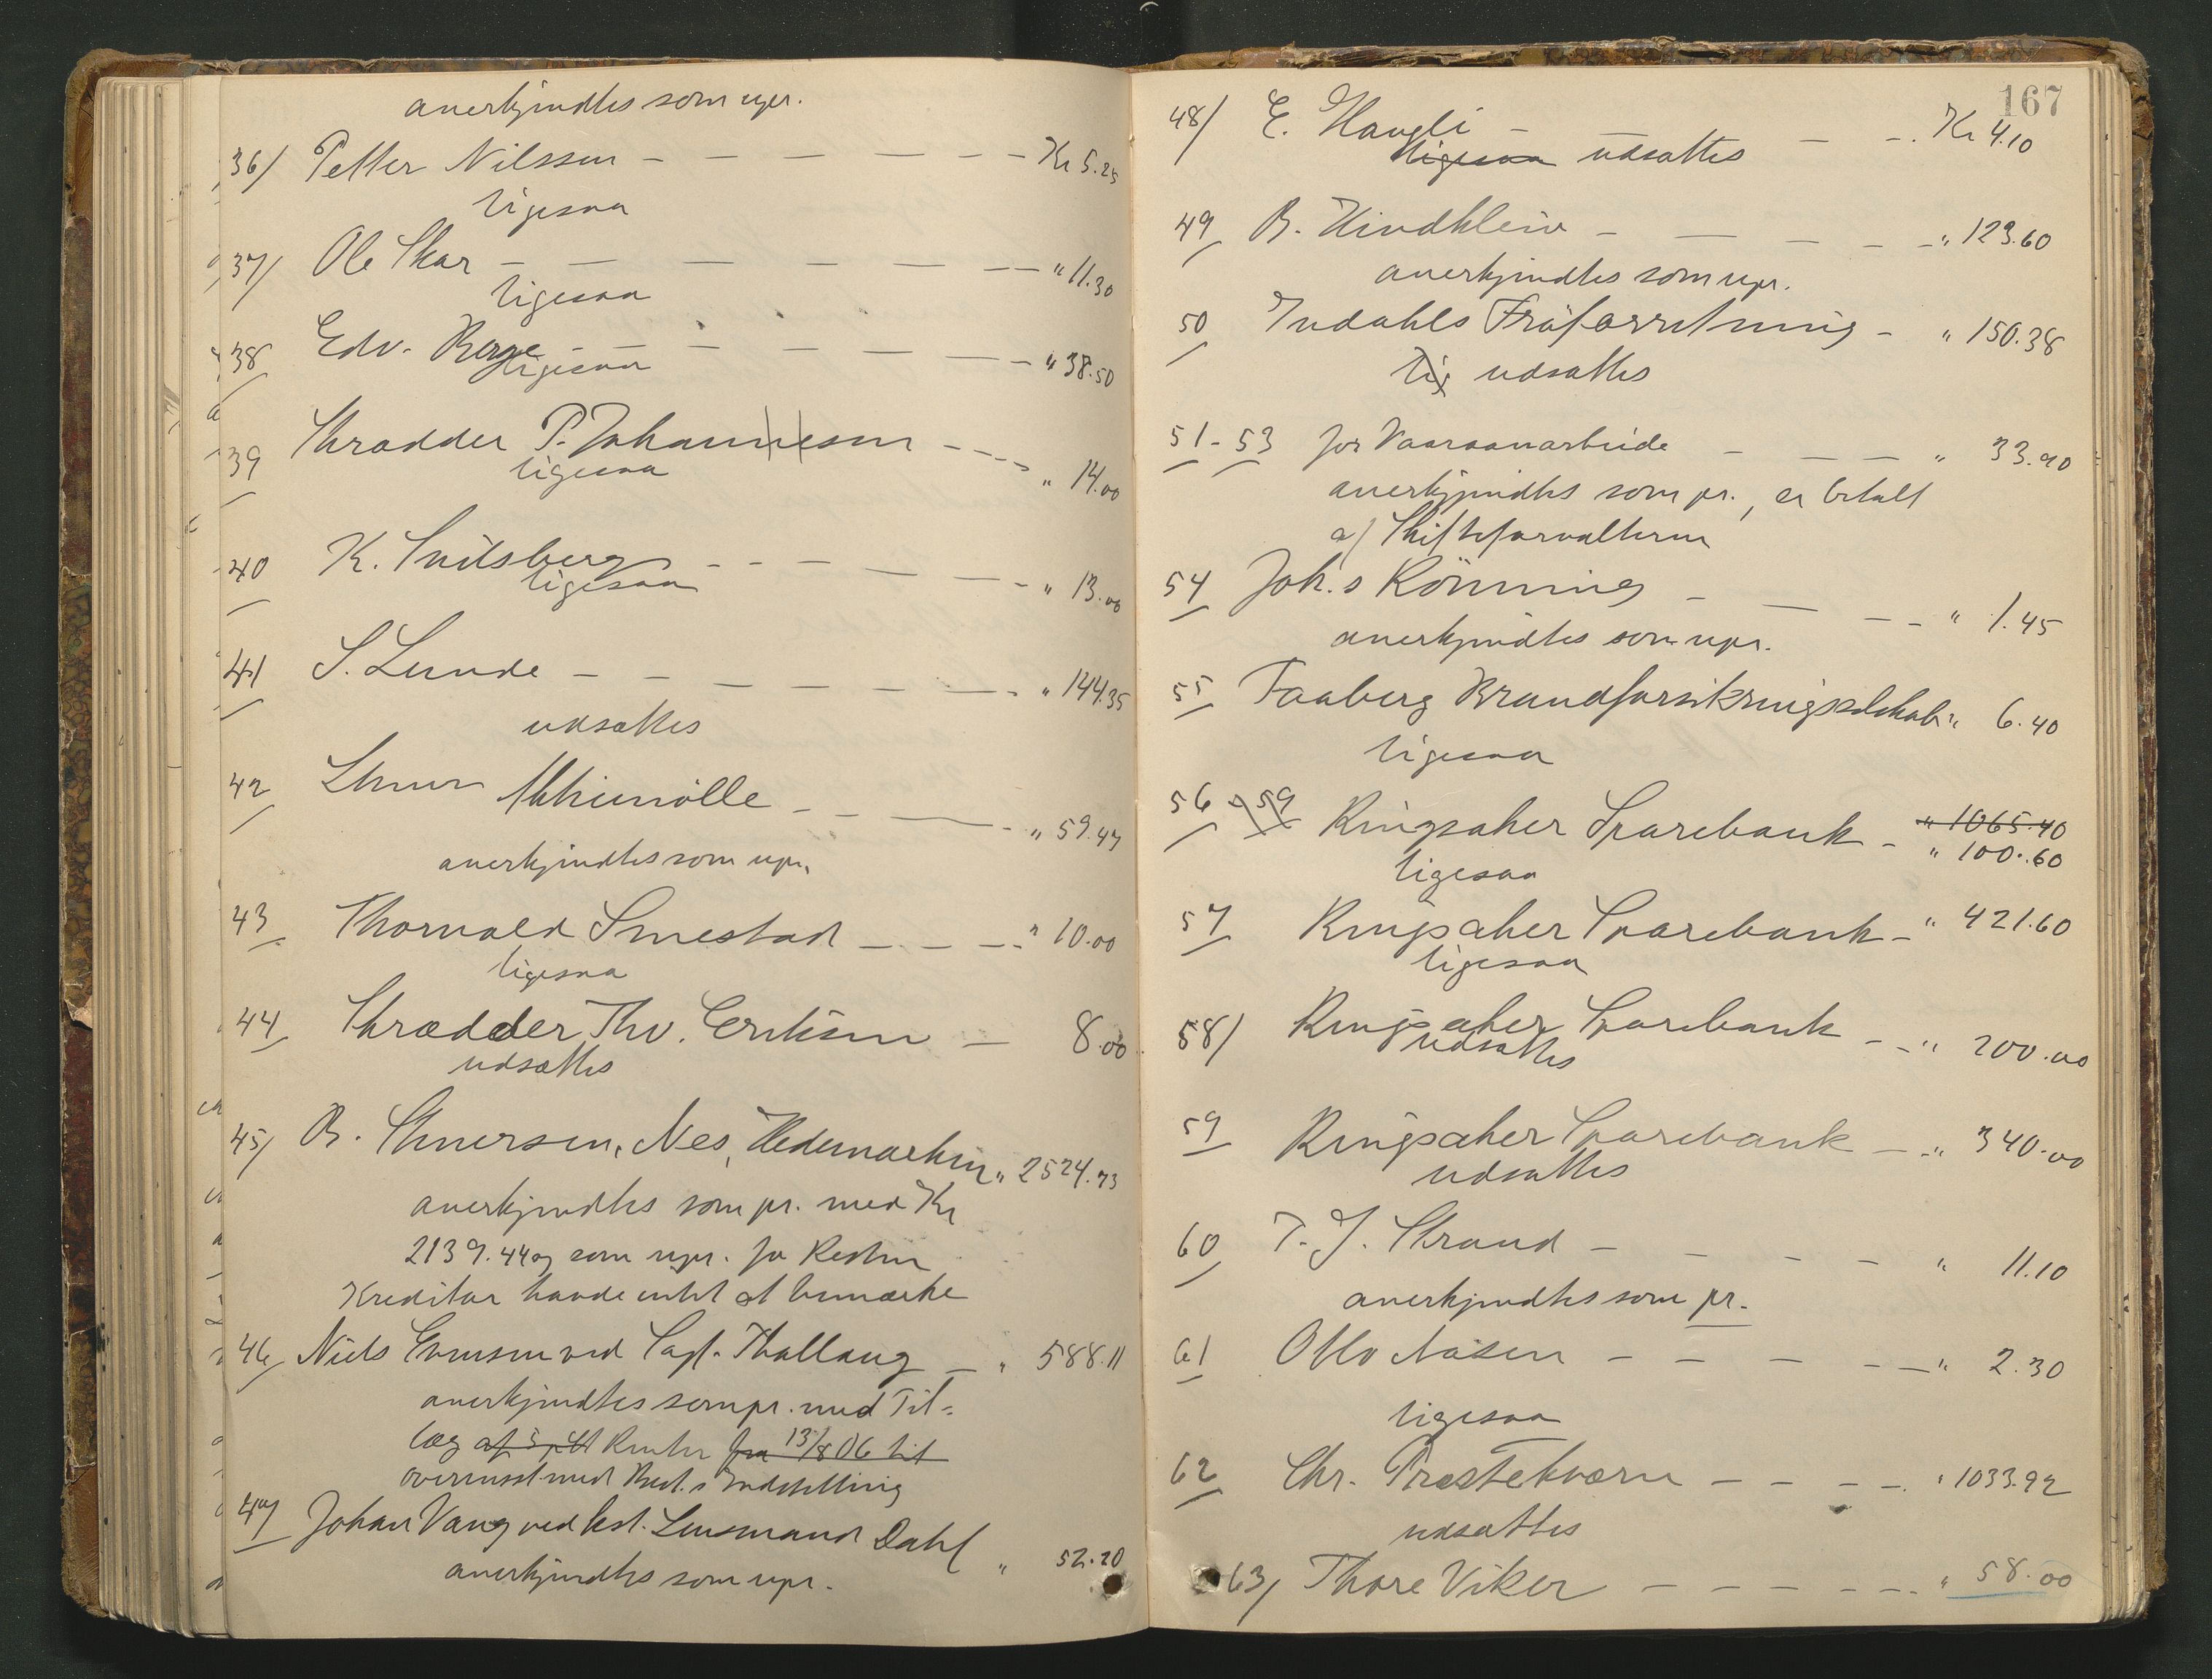 anerkjendtes som upr.
36/ Petter Nilssen - - - - - - Kr 5.25
ligesaa
37/ Ole Skar - - - - - - - " 11.30
ligesaa
38 Edv. Berge - - - - - - " 38.50
ligesaa
39 Skrædder P. Johannesen - - - - " 14.00
ligesaa
40 K. Snilsberg - - - - - - " 13.00
ligesaa
41 S. Lunde - - - - - - - " 144.35
udsattes
42 - - - - " 59.47
anerkjendtes som upr.
43 Thorvald Smestad - - - " 10.00
ligesaa
44 Skrædder Thv. Eriksen - 8.00
udsattes
45/ B. Nes, Hedemarken " 2524.73
anerkjendtes som pr. med Kr
2139.44 og som upr. for Resten
Kreditor havde intet at bemærke
46/ Niels Evensen ved Sagf. Thallaug - " 588.11
anerkjendtes som pr. med Til-
læg af 5 pCt Renter fra 13/8 06 til
overensst med Best.s Indstilling
47 Johan Vang ved kst. Lensmand Dahl " 52.20
anerkjendtes som upr.
167
48/ E. Haugli - - - - Kr 4.10
ligesaa udsattes
49 B. Hindkleiv - - - - - " 123.60
anerkjendtes som upr.
50 Indahls Fröforretning - " 150.38
lig udsattes
51-53 for Vaaraanarbeide - - - " 33.90
anerkjendtes som pr., er betalt
af Skifteforvalteren
54 Joh.s Rönning - - - - " 1.45
anerkjendtes som upr.
55 Faaberg Brandforsikringsselskab " 6.40
ligesaa
56 - 59 Ringsaker Sparebank - " 1065.40
" 100.60
ligesaa
57 Ringsaker Sparebank - " 421.60
ligesaa
58/ Ringsaker Sparebank - - " 200.00
udsattes
59 Ringsaker Sparebank - - " 340.00
udsattes
60 T. J. Strand - - - - " 11.10
anerkjendtes som pr.
61 Otto Aasen - - - - - " 2.30
ligesaa
62 Chr. Præstekværn - - - - " 1033.92
udsattes
63/ Thore Viker - - - - - " 58.00